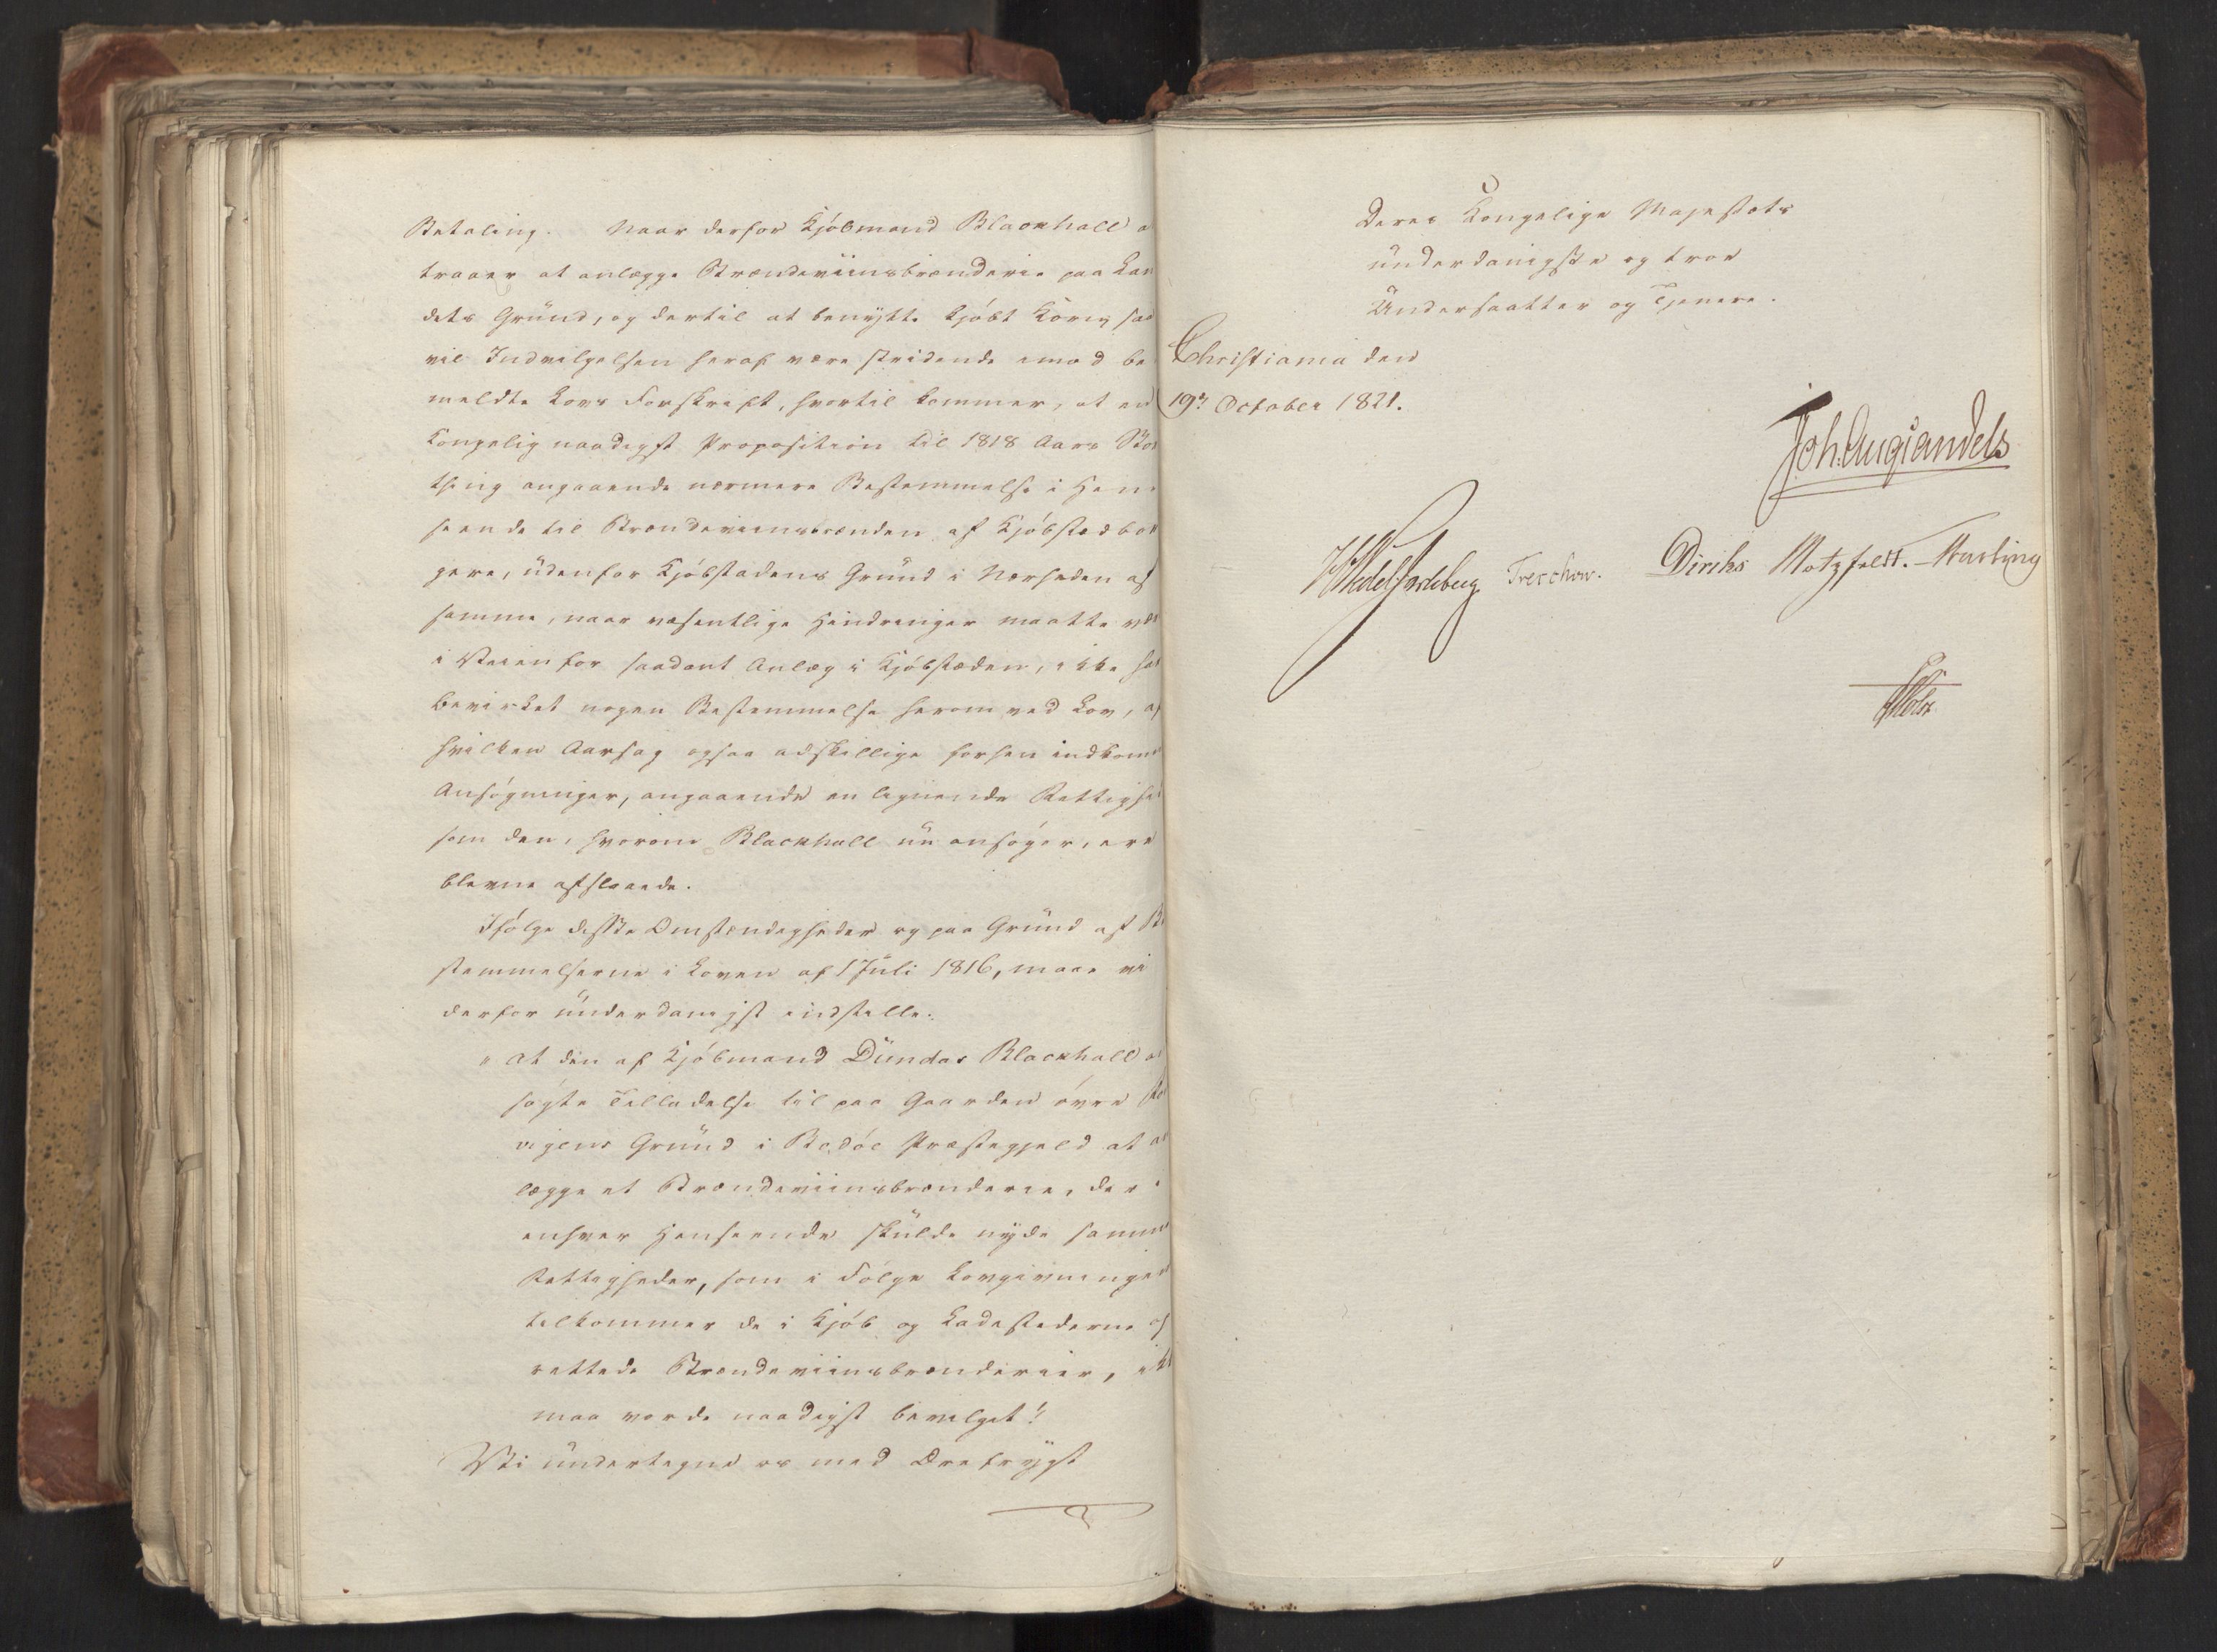 Betaling. Naar derfor Kjøbmand Blackhall a
traaer at anlægge Brændeviinsbrænderie paa Lan
dets Grund, og dertil at benytte kjøbt Korn, saa
vil Indvilgelsen heraf være stridende imod be
meldte Lovs Forskrift, hvortil kommer, at en
Kongelig naadigst Proposition til 1818 Aars Stor
thing angaaende nærmere Bestemmelse i Hen
seende til Brændeviinsbrænden af Kjøbstedbor
gere, udenfor Kjøbstadens Grund i Nærheden af
samme, naar væsentlige Hindringer maatte vær
i Veien for saadant Anlæg i Kjøbstæden, ikke har
bevirket nogen Bestemmelse herom ved Lov, af
hvilken Aarsag ogsaa adskillige forhen indkom
Ansøgninger, angaaende en lignende Rettighed
som den, hvorom Blackhall nu ansøger, ere
blevne afslaaede.
Ifølge disse Omstændigheder og paa Grund af Be
stemmelserne i Loven af 1 Juli 1816, maae vi
derfor underdanigst indstille:
"at den af Kjøbmand Dundas Blackhall an
søgte Tilladelse til paa Gaarden øvre
vigens Grund i Præstegjeld at an
lægge et Brændeviinsbrænderie, der i
enhver Henseende skulde nyde samme
Rettigheder, som i Følge Lovgivningen
tilkommer de i Kjøb og Ladestederne op
rettede Brændeviinsbrænderier, ikke
maa vorde naadigst bevilget"
Vi undertegne os med Ærefrygt
Deres Kongelige Majestæts
underdanigste og troe
Undersaatter og Tjenere.
Christiania den
19de October 1821.
Joh. Aug: Sandels
HWedel Jarlsberg Treschow. Diriks Motzfeldt.
Holst